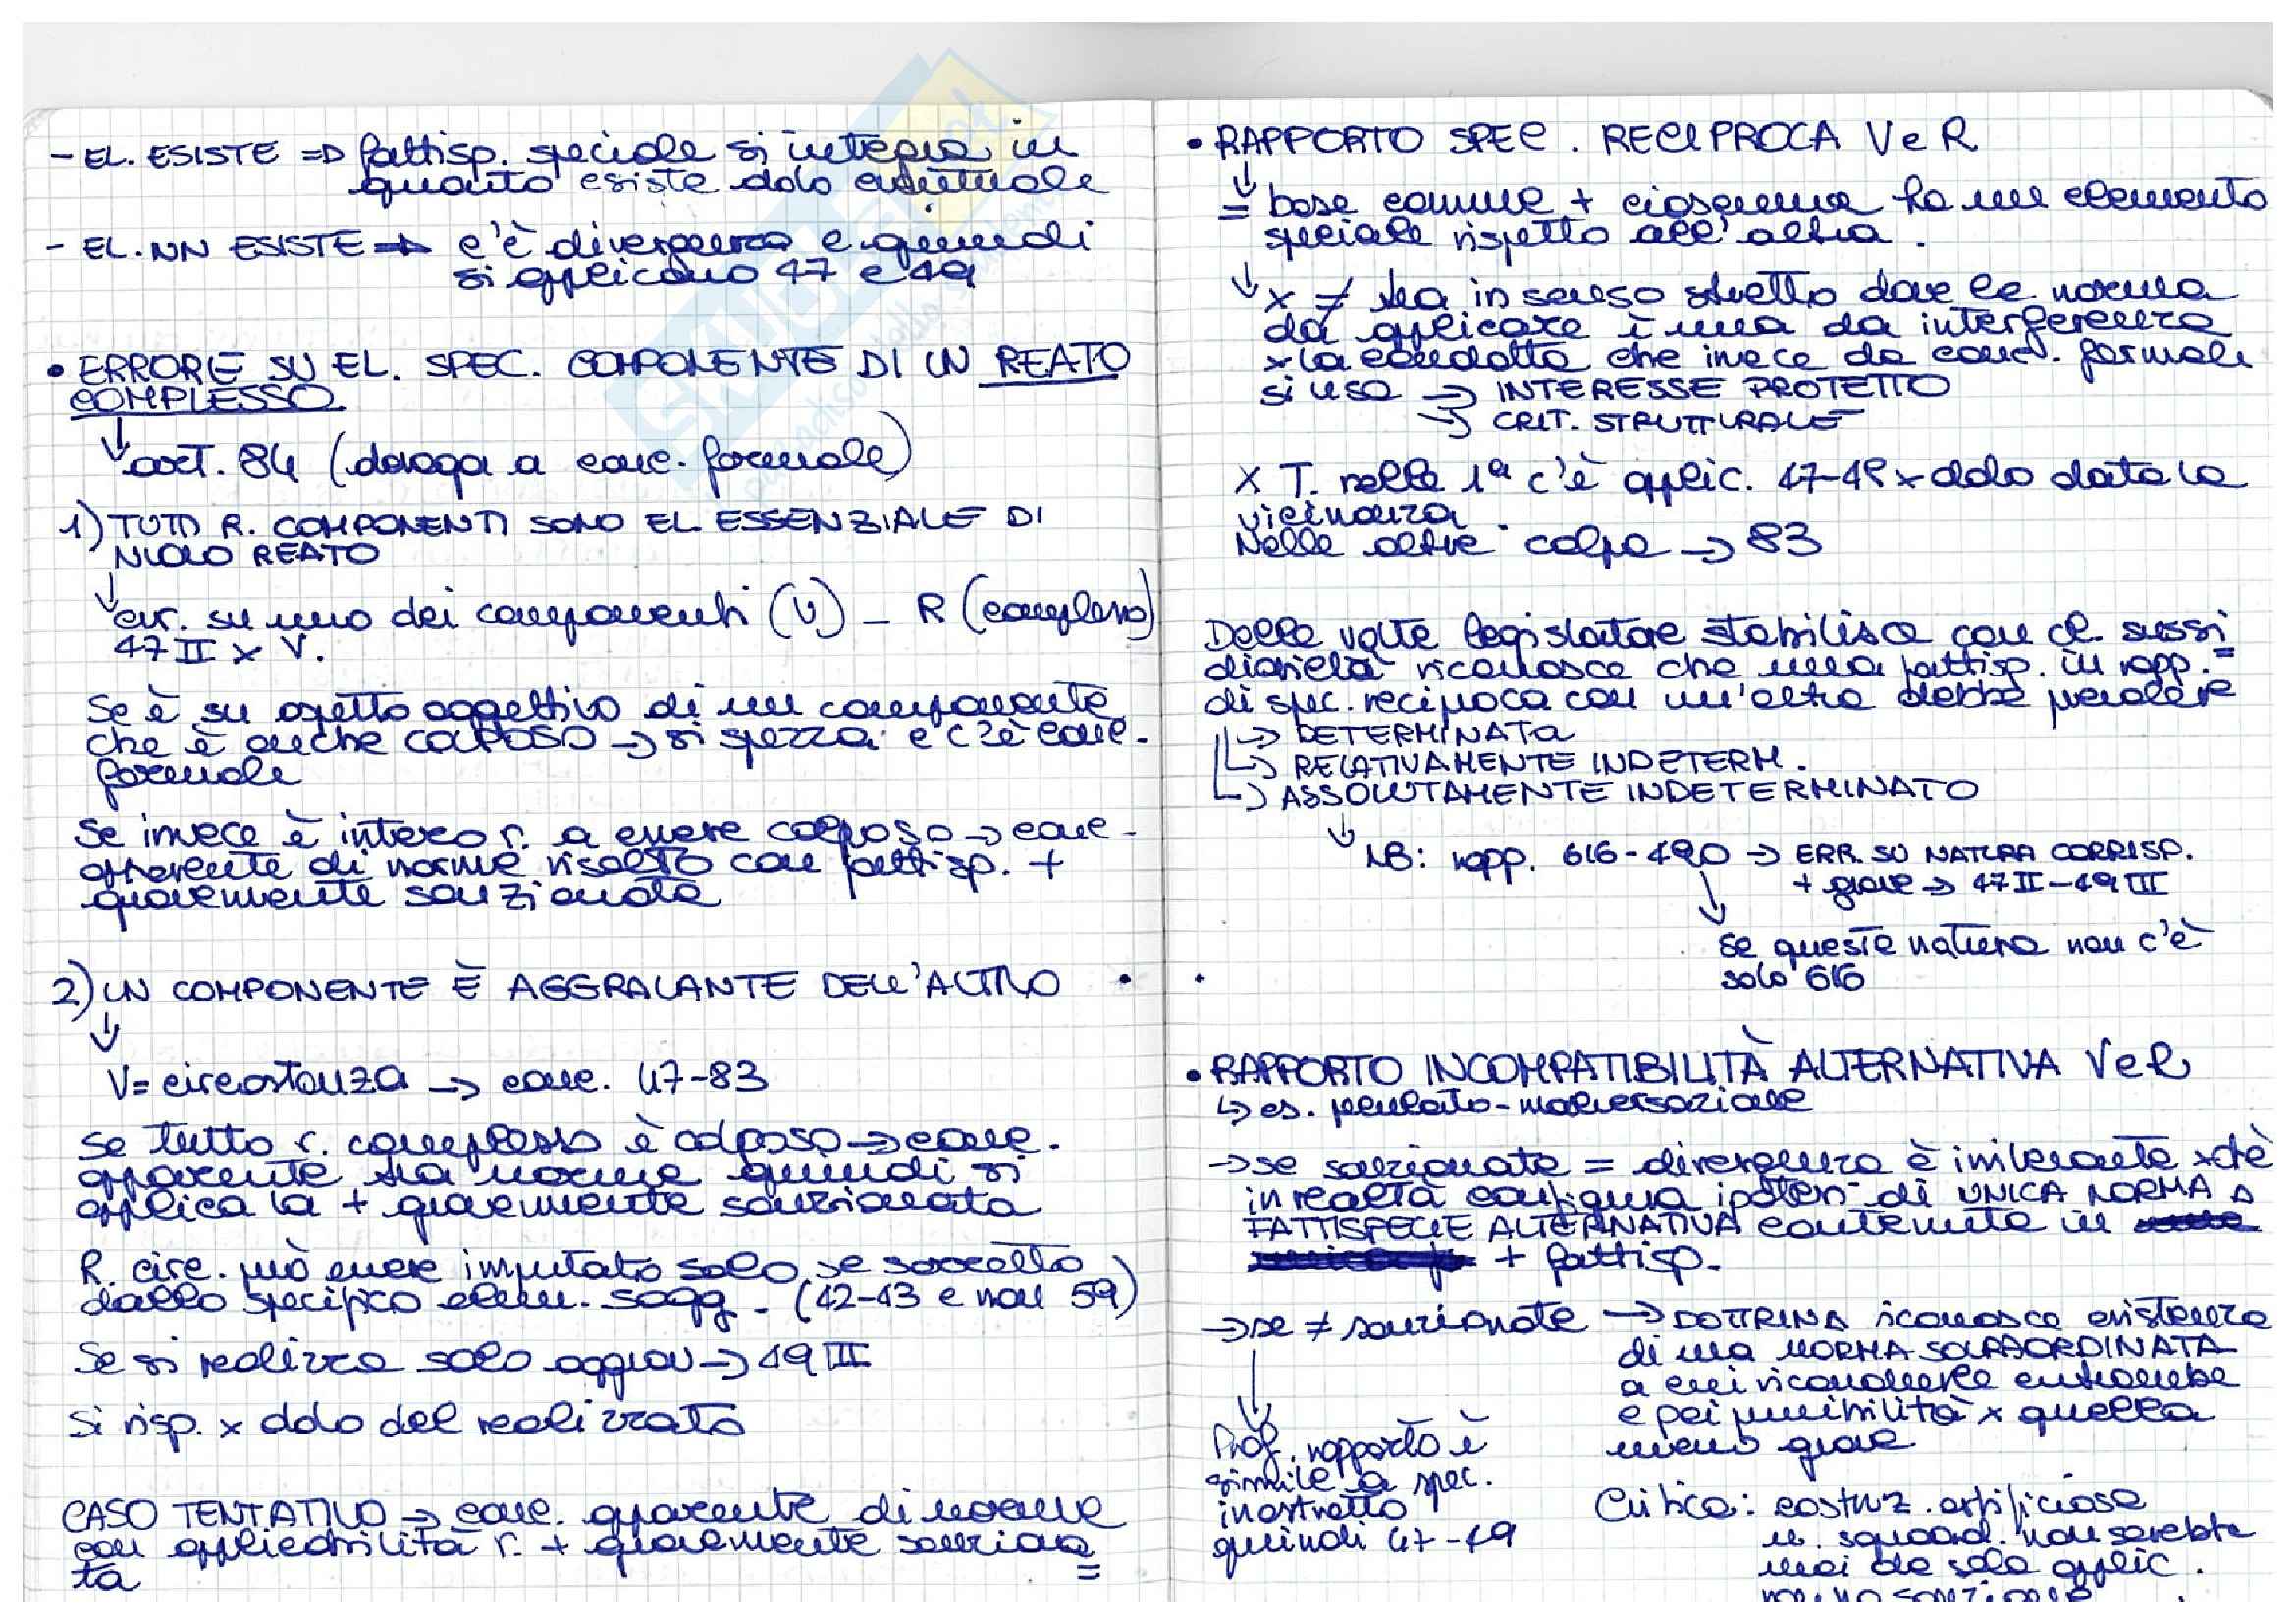 - EL. ESISTE => fattisp. speciale si integra in
quanto esiste dolo eventuale
- EL. NN ESISTE => c'è divergenza e quindi
si applicano 47 e 49
• ERRORE SU EL. SPEC. COMPONENTE DI UN REATO
COMPLESSO
↓ art. 84 (deroga a conc. formale)
1) TUTTI R. COMPONENTI SONO EL. ESSENZIALE DI
NUOVO REATO
↓ err. su uno dei componenti (V) - R (complesso)
47 II x V.
Se è su oggetto oggettivo di un componente
che è anche COLPOSO → si spezza e c'è conc.
formale
Se invece è intero r. a essere colposo → conc.
apparente di norme risolto con fattisp. +
gravemente sanzionata
2) UN COMPONENTE È AGGRAVANTE DELL'ALTRO
↓
V = circostanza → conc. 47-83
Se tutto r. complesso è colposo → conc.
apparente tra norme quindi si
applica la + gravemente sanzionata
R. circ. può essere imputato solo se sorretto
dallo specifico elem. sogg. (42-43 e non 59)
Se si realizza solo aggrav → 49 III
Si risp. x dolo del realizzato
CASO TENTATIVO → conc. apparente di norme
con applicabilità r. + gravemente sanziona=
ta
• RAPPORTO SPEC. RECIPROCA V e R
↓
= base comune + ciascuna ha un elemento
speciale rispetto all'altra.
↓ x ≠ tra in senso stretto dove le norma
da applicare è una da interferenza
x la condotta che invece da conc. formale
si usa → INTERESSE PROTETTO
→ CRIT. STRUTTURALE
x T. nella 1ª c'è applic. 47-49 x dolo data la
vicinanza.
Nelle altre colpa → 83
Delle volte legislatore stabilisce con cl. sussi=
diarietà riconosce che una fattisp. in rapp.
di spec. reciproca con un'altra debba prevalere
→ DETERMINATA
→ RELATIVAMENTE INDETERM.
→ ASSOLUTAMENTE INDETERMINATO
↓ NB: rapp. 616-490 → ERR. SU NATURA CORRISP.
+ grave → 47 II - 49 III
↓
Se queste natura non c'è
solo 616
• RAPPORTO INCOMPATIBILITÀ ALTERNATIVA V e R
↳ es. peculato-malversazione
→ se sanzionate = divergenza è irrilevante xchè
in realtà configura ipotesi di UNICA NORMA A
FATTISPECIE ALTERNATIVA contenuta in
+ fattisp.
→ se ≠ sanzionate → DOTTRINA riconosce esistenza
di una NORMA SOVRAORDINATA
a cui ricondurre entrambe
e poi punibilità x quella
meno grave
↓
Prof. rapporto è
simile a spec.
in astratto
quindi 47-49
Critica: costruz. artificiosa
n. sovraord. non sarebbe
mai da sola applic.